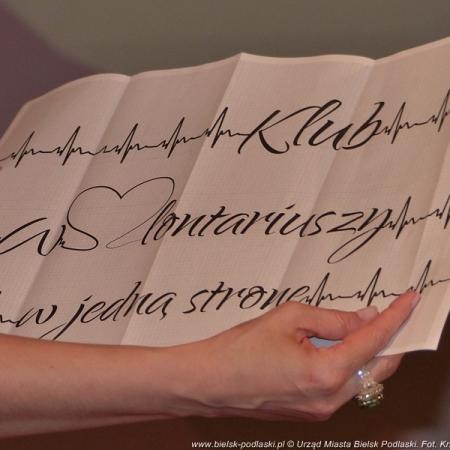 Klub
Wolontariuszy
w jedną stronę
www.bielsk-podlaski.pl © Urząd Miasta Bielsk Podlaski. Fot. Kr